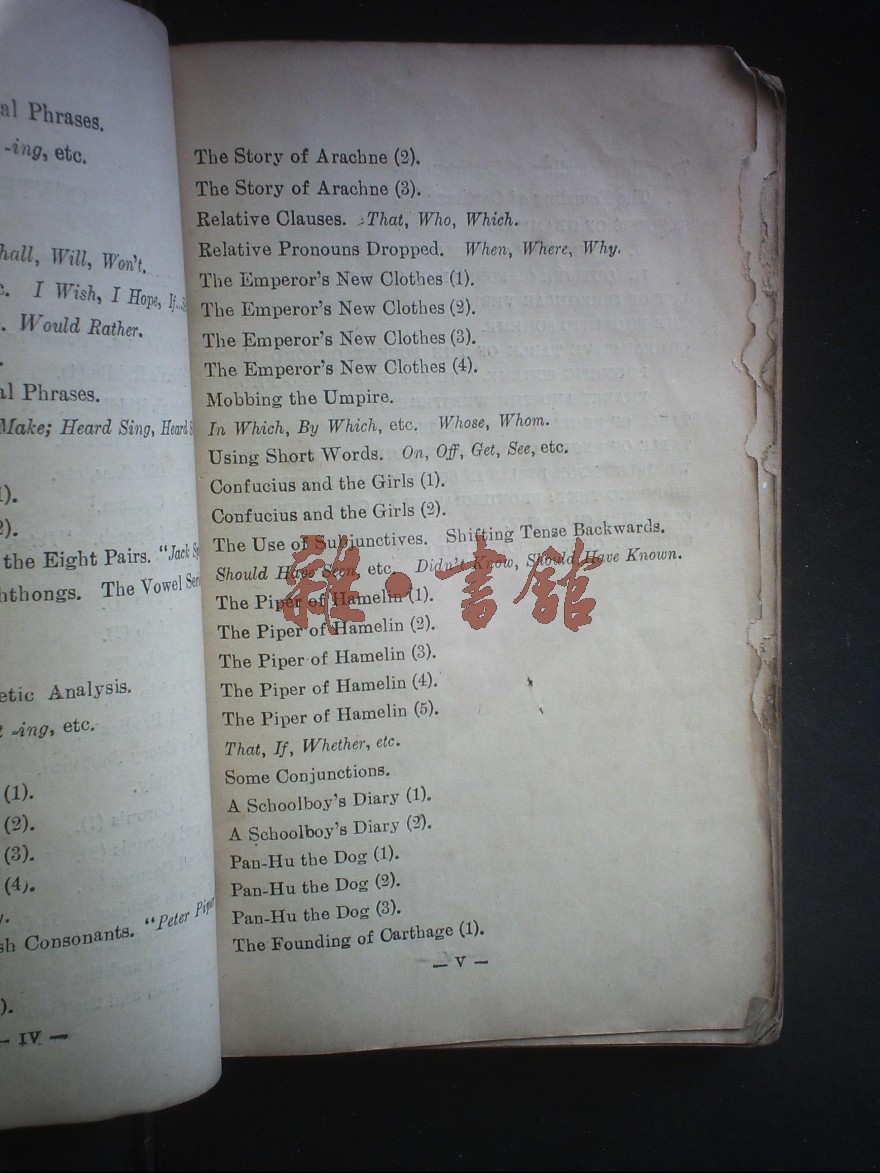 al Phrases.
-ing, etc.
hall, Will, Won't.
I Wish, I Hope, If
Would Rather.
al Phrases.
Make; Heard Sing, Heard
1).
2).
the Eight Pairs. "Jack
hthongs. The Vowel
etic Analysis.
-ing, etc.
(1).
(2).
(3).
(4).
sh Consonants. "Peter Piper
).
— IV —
The Story of Arachne (2).
The Story of Arachne (3).
Relative Clauses. That, Who, Which.
Relative Pronouns Dropped. When, Where, Why.
The Emperor's New Clothes (1).
The Emperor's New Clothes (2).
The Emperor's New Clothes (3).
The Emperor's New Clothes (4).
Mobbing the Umpire.
In Which, By Which, etc. Whose, Whom.
Using Short Words. On, Off, Get, See, etc.
Confucius and the Girls (1).
Confucius and the Girls (2).
The Use of Subjunctives. Shifting Tense Backwards.
Should Have Seen, etc. Didn't Know, Should Have Known.
The Piper of Hamelin (1).
The Piper of Hamelin (2).
The Piper of Hamelin (3).
The Piper of Hamelin (4).
The Piper of Hamelin (5).
That, If, Whether, etc.
Some Conjunctions.
A Schoolboy's Diary (1).
A Schoolboy's Diary (2).
Pan-Hu the Dog (1).
Pan-Hu the Dog (2).
Pan-Hu the Dog (3).
The Founding of Carthage (1).
— V —
雜·書館